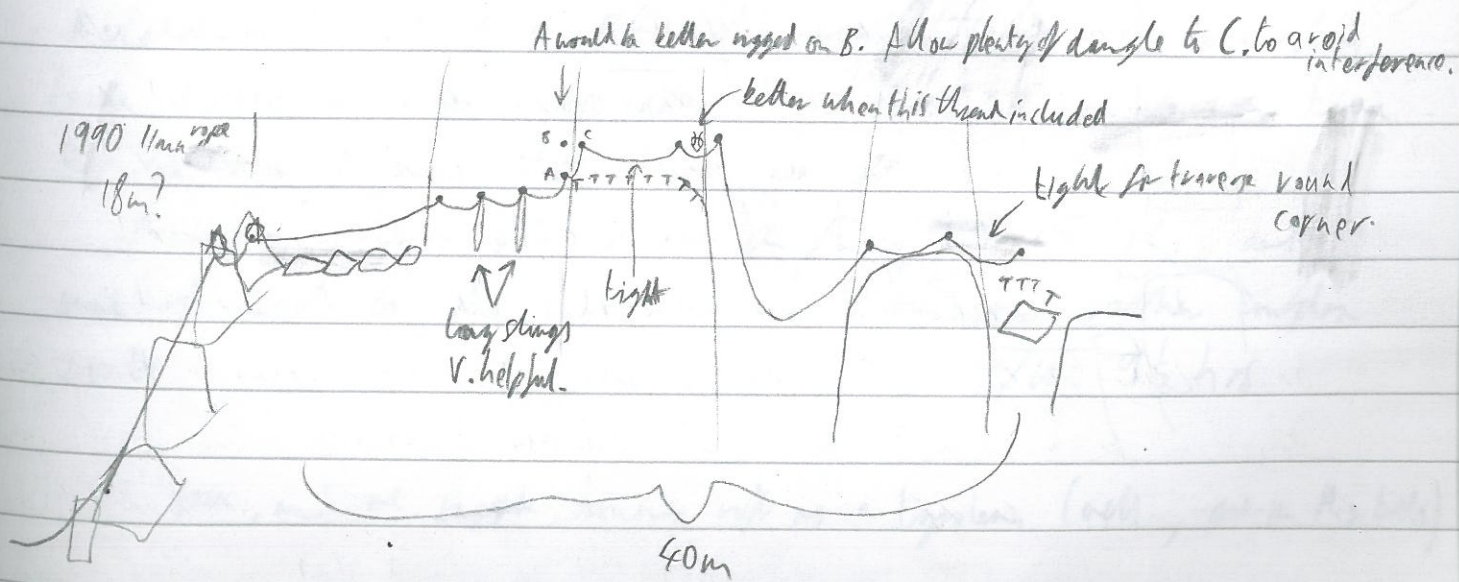 A would be better rigged on B. Allow plenty of dangle to C, to avoid
interference.
better when this thread included
1990 11mm rope
18m?
B
C
A
T T T T T T T
tight for traverse round
corner.
T T T T
tight
Long slings
V. helpful.
40m